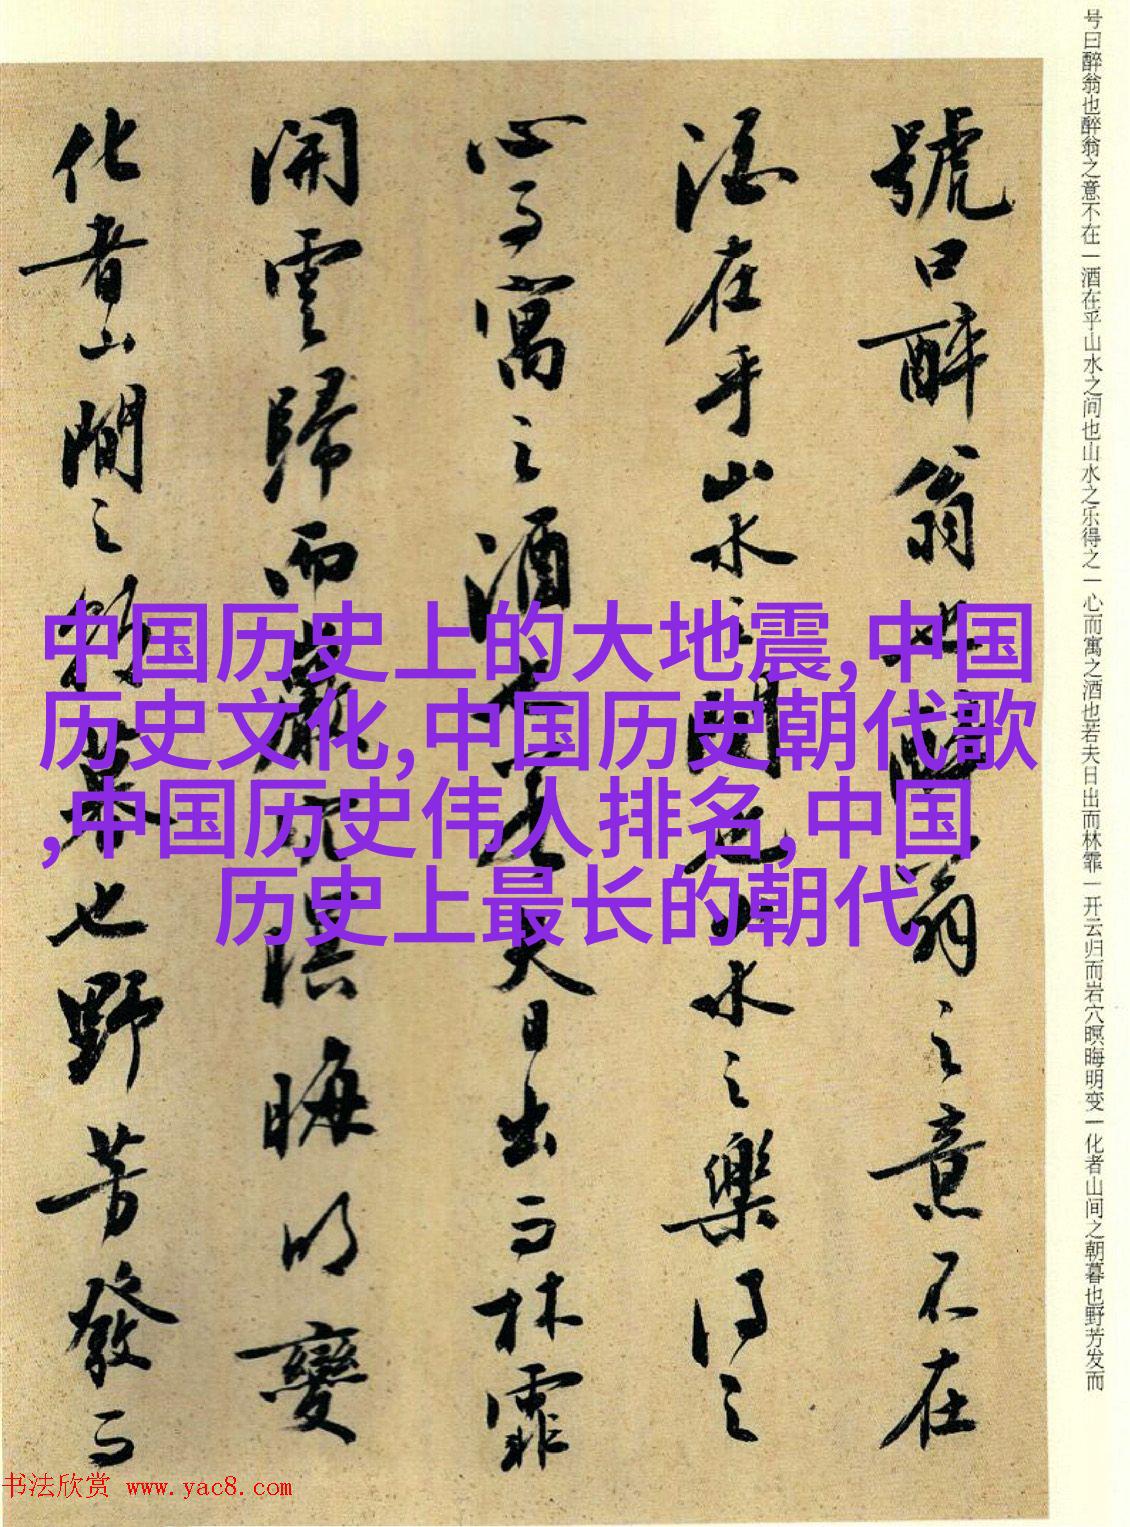 号曰醉翁也醉翁之意不在一酒在乎山水之间也山水之乐得之一心而寓之酒也若夫日出而林霏一开云归而岩穴暝晦明变一化者山间之朝暮也野芳发而
號曰醉翁也醉翁之意不在
酒在乎山水之間也山水之樂得之
心而寓之酒也若夫日出而林霏
開雲歸而巖穴暝晦明變
化者山間之朝暮也野芳發而
中国历史上的大地震,中国
历史文化,中国历史朝代歌
,中国历史伟人排名,中国
历史上最长的朝代
书法欣赏 www.yac8.com